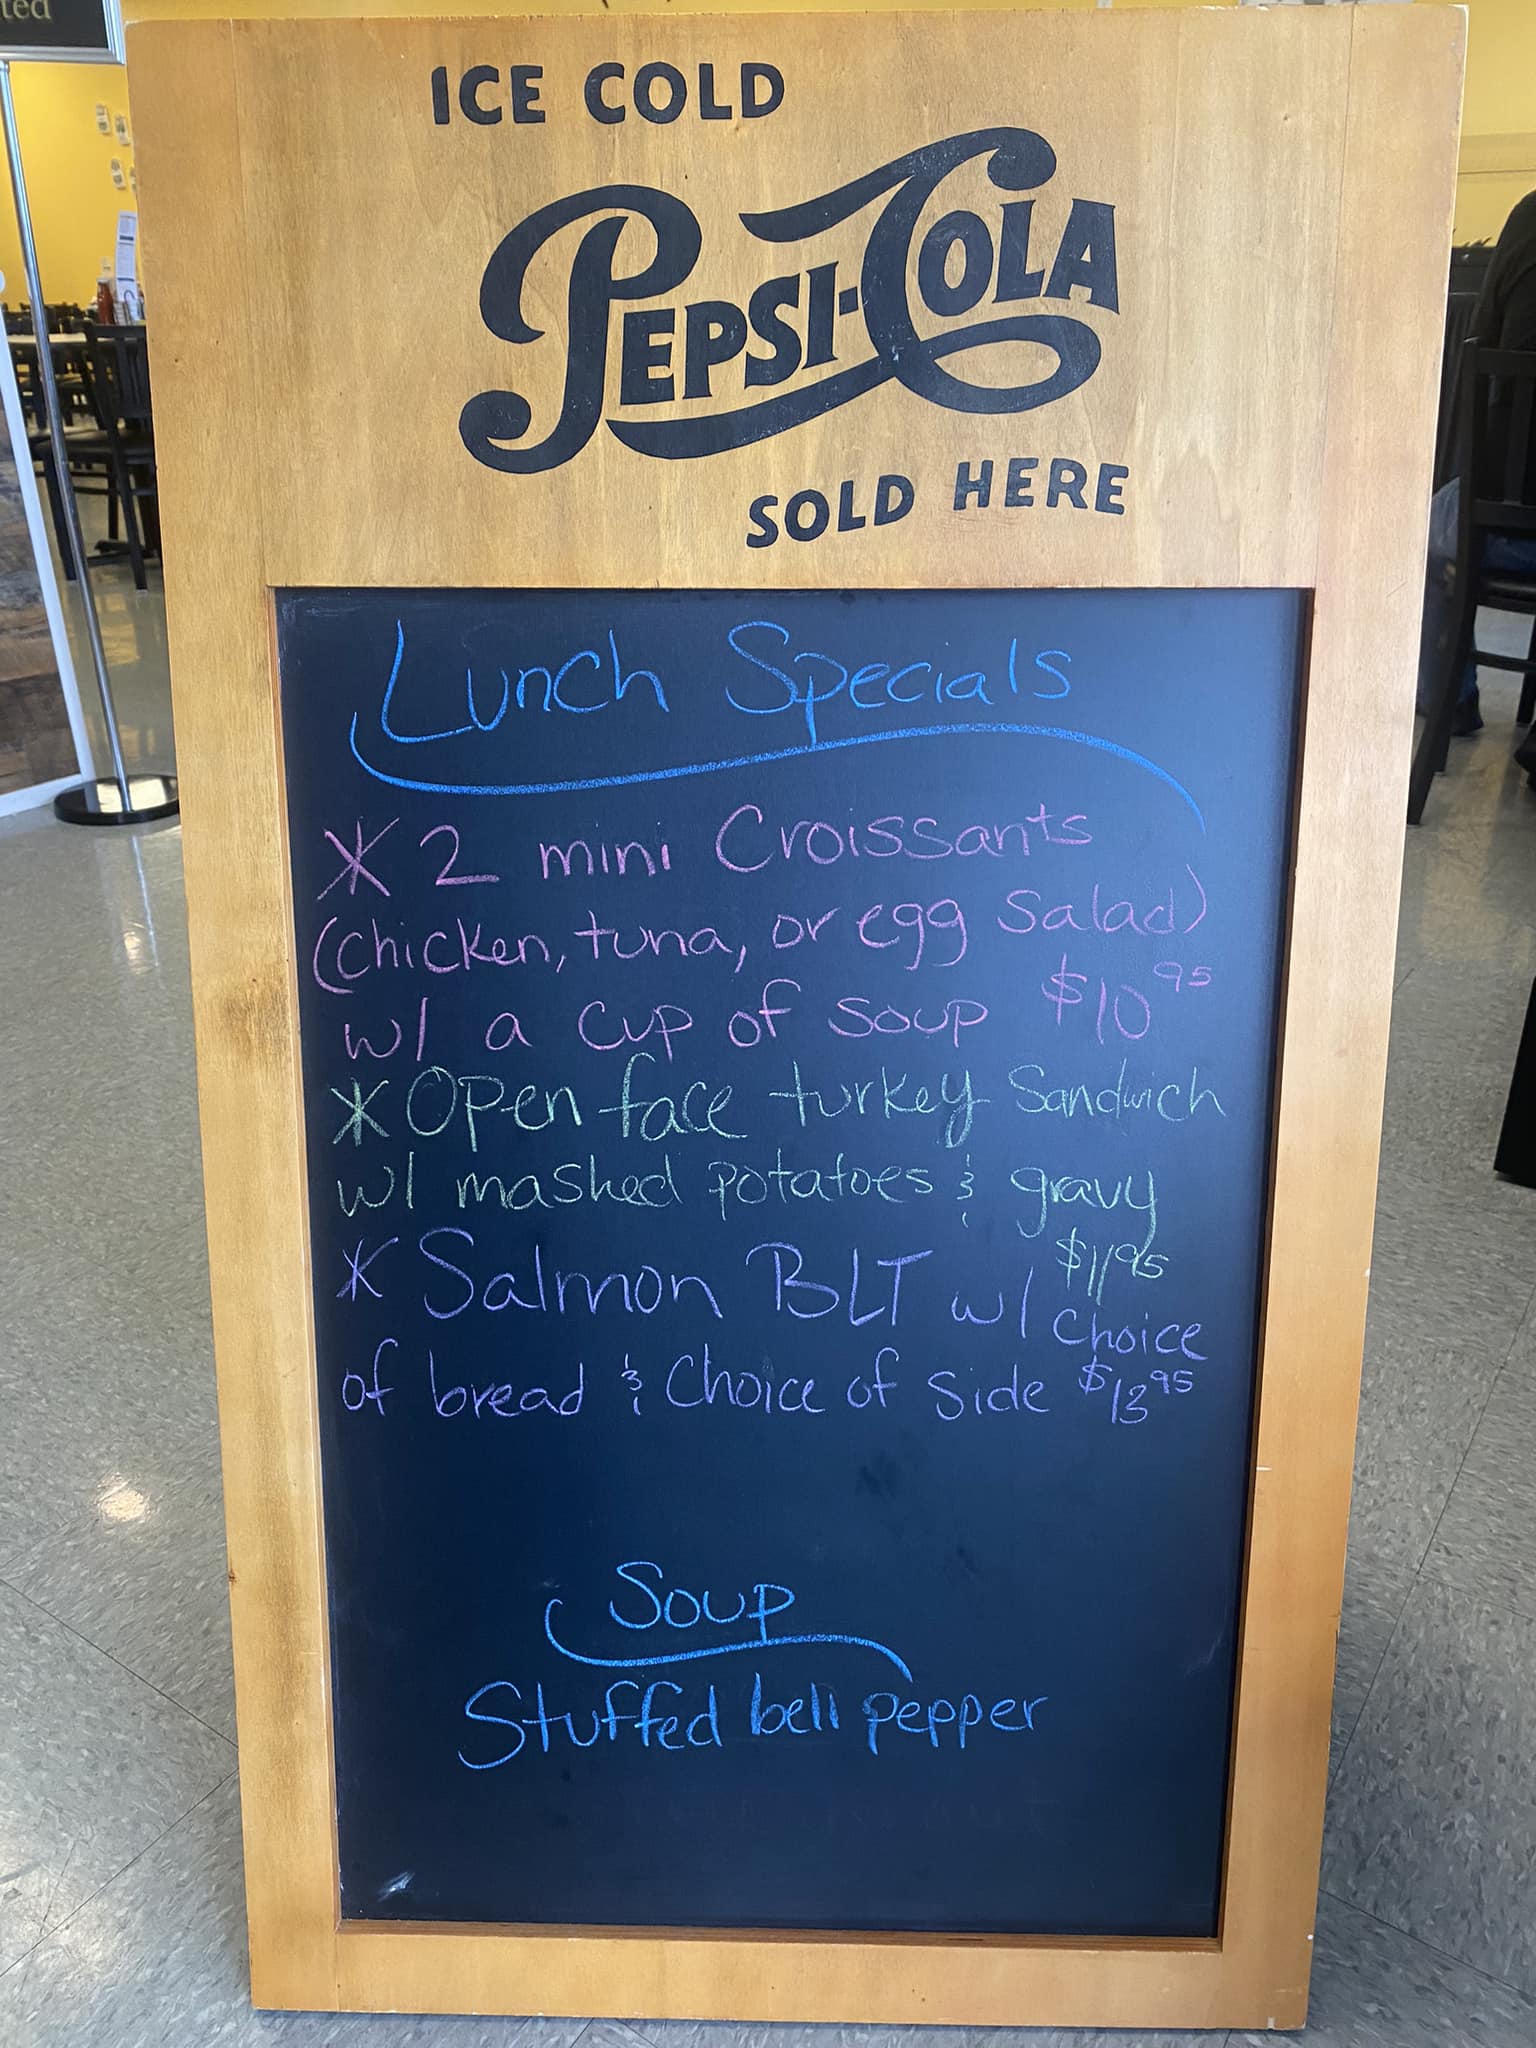 ted
ICE COLD
PEPSI-COLA
SOLD HERE
Lunch Specials
* 2 mini Croissants
(chicken, tuna, or egg Salad)
w/ a cup of soup $10 95
* Open face turkey Sandwich
w/ mashed potatoes & gravy
$11 95
* Salmon BLT w/ choice
of bread & Choice of side $13 95
Soup
Stuffed bell pepper